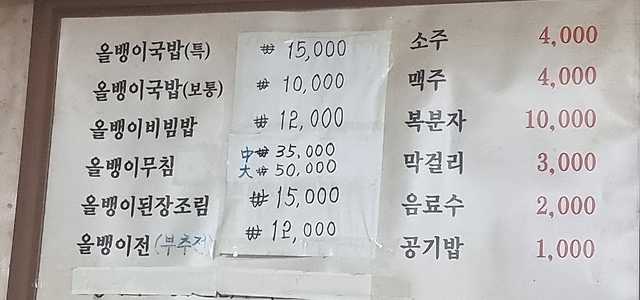 올뱅이국밥(특) ₩ 15,000
올뱅이국밥(보통) ₩ 10,000
올뱅이비빔밥 ₩ 12,000
올뱅이무침 中 ₩ 35,000
大 ₩ 50,000
올뱅이된장조림 ₩ 15,000
올뱅이전(부추전) ₩ 12,000
소주 4,000
맥주 4,000
복분자 10,000
막걸리 3,000
음료수 2,000
공기밥 1,000